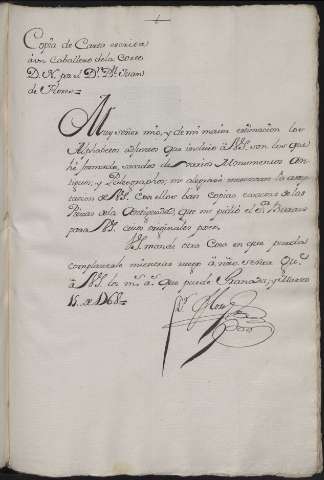 Copia de Carta escrita
á un Caballero de la Corte
D. N. por el Dr. Dn. Juan
de Flores
Muy señor mio, y de mi maior estimacion los
Alphabetos adjuntos que incluio á VS. son los que
hé formado, sacados de varios Monumentos An-
tiguos; y me alegraré merezcan la acep-
tacion de VS. Con ellos van copias exactas de las
Piezas de la Antiguedad, que me pidió el Pe.
para VS. cuios originales poseo.
VS. mande otra Cosa en que pueda
complacerle mientras ruego á nro. Señor Gue.
á VS. los ms. as. que puede Granada, y Marzo
15. de 1768
Dr. Flores